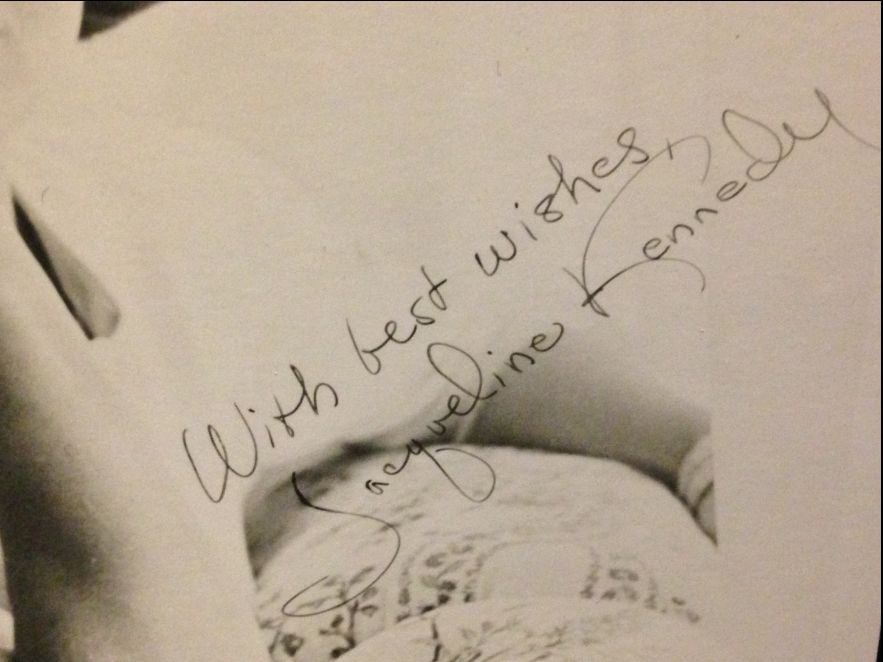 With best wishes,
Jacqueline Kennedy